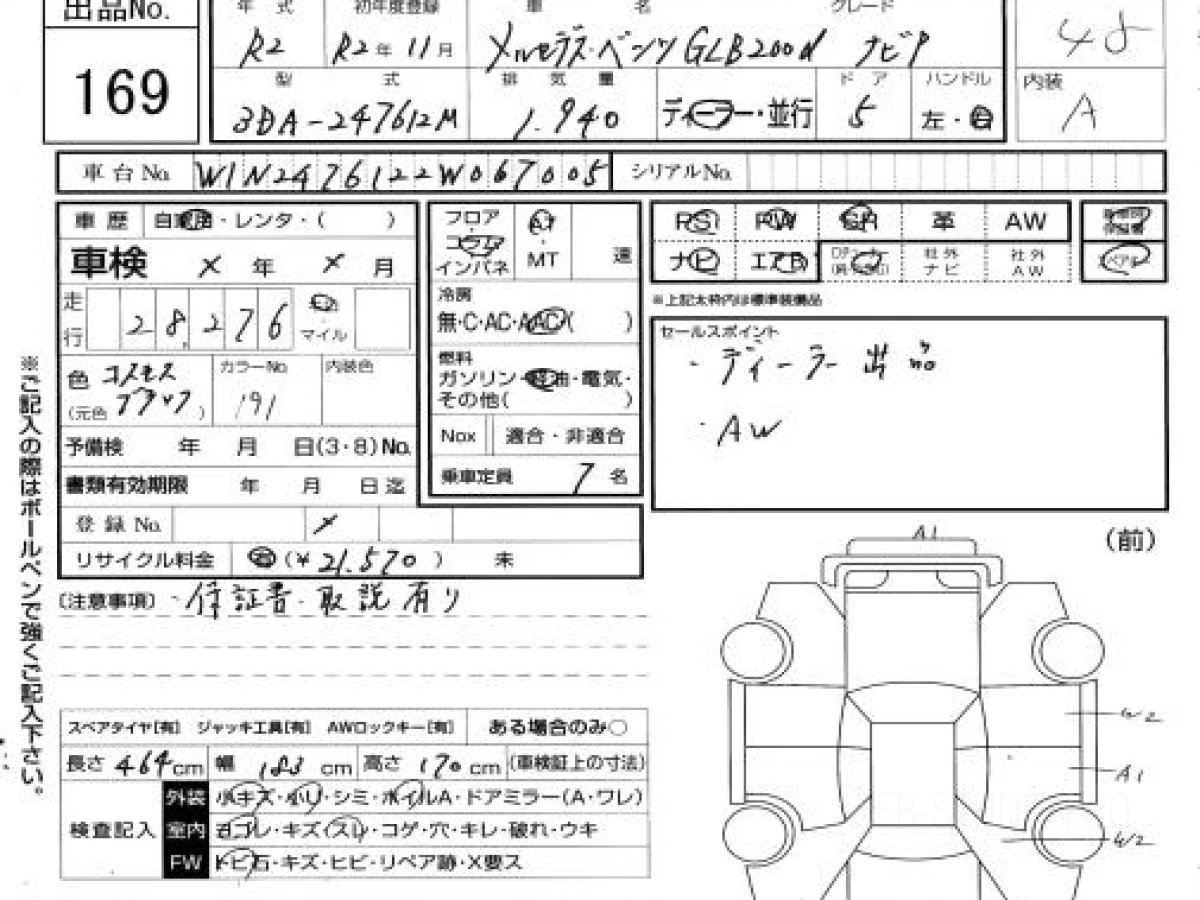 出品No.
169
年 式 初年度登録 車 名 グレード
R2 R2年 11月 メルセデス・ベンツ GLB200d ナビP
型 式 排 気 量 ド ア ハンドル 内装
3DA-247612M 1.940 ディーラー・並行 5 左・右 A
車台No. W1N2476122W067005 シリアルNo.
車 歴 自家用・レンタ・( )
車検 × 年 × 月
走行 28,276 マイル
色 コスモスブラック
(元色 )
カラーNo. 191 内装色
予備検 年 月 日(3・8)No.
書類有効期限 年 月 日迄
登 録 No.
リサイクル料金 (¥ 21.570 ) 未
フロア
コラム
インパネ
AT
・
MT
速
冷房
無・C・AC・AAC( )
燃料
ガソリン・軽油・電気・
その他( )
Nox 適合・非適合
乗車定員 7 名
PS PW SR 革 AW
ナビ エアB 社外ナビ 社外AW
※上記太枠内は標準装備品
セールスポイント
・ディーラー出品
・AW
〔注意事項〕・保証書・取説有り
※ご記入の際はボールペンで強くご記入下さい。
スペアタイヤ[有] ジャッキ工具[有] AWロックキー[有] ある場合のみ○
長さ 464cm 幅 183 cm 高さ 170 cm (車検証上の寸法)
検査記入
外装 小キズ・小U・シミ・ホイルA・ドアミラー(A・ワレ)
室内 ヨゴレ・キズ・スレ・コゲ・穴・キレ・破れ・ウキ
FW トビ石・キズ・ヒビ・リペア跡・X要ス
(前)
A1
W2
A1
W2